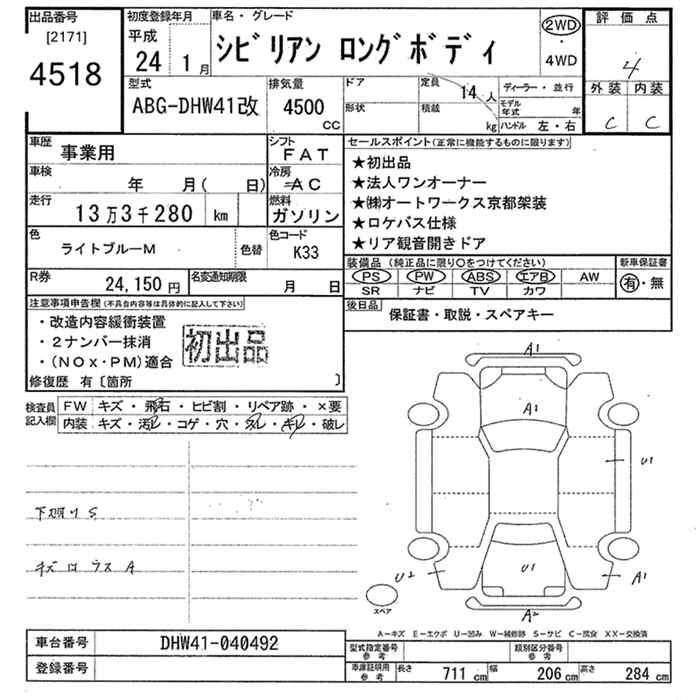 出品番号
[2171]
4518
初度登録年月
平成
24 1月
車名・グレード
シビリアン ロングボディ
2WD
・
4WD
評価点
4
外装 内装
C C
型式
ABG-DHW41改
排気量
4500
CC
ドア
形状
定員
14人
積載
kg
ディーラー・並行
モデル年式 年
ハンドル 左・右
車歴
事業用
シフト
FAT
車検
年 月( 日)
冷房
AC
走行
13万3千280 km
燃料
ガソリン
色
ライトブルーM
色替
色コード
K33
R券
24,150円
名変通知期限
月 日
セールスポイント(正常に機能するものに限ります)
★初出品
★法人ワンオーナー
★㈱オートワークス京都架装
★ロケバス仕様
★リア観音開きドア
装備品(純正品に限り○をつけてください)
PS PW ABS エアB AW
SR ナビ TV カワ
新車保証書
有・無
後日品
保証書・取説・スペアキー
注意事項申告欄(不具合内容等は具体的に記入して下さい)
・改造内容緩衝装置
・2ナンバー抹消
・(NOx・PM)適合
初出品
修復歴 有〔箇所 〕
検査員記入欄
FW キズ・飛石・ヒビ割・リペア跡・×要
内装 キズ・汚レ・コゲ・穴・スレ・キレ・破レ
下廻りS
キズ A
A1
A1
U1
U2
U1
A1
A2
スペア
A-キズ E-エクボ U-凹み W-補修跡 S-サビ C-腐食 XX-交換済
車台番号
DHW41-040492
登録番号
型式指定番号
参考
類別区分番号
参考
車庫証明用
参考
長さ 711cm 幅 206cm 高さ 284cm